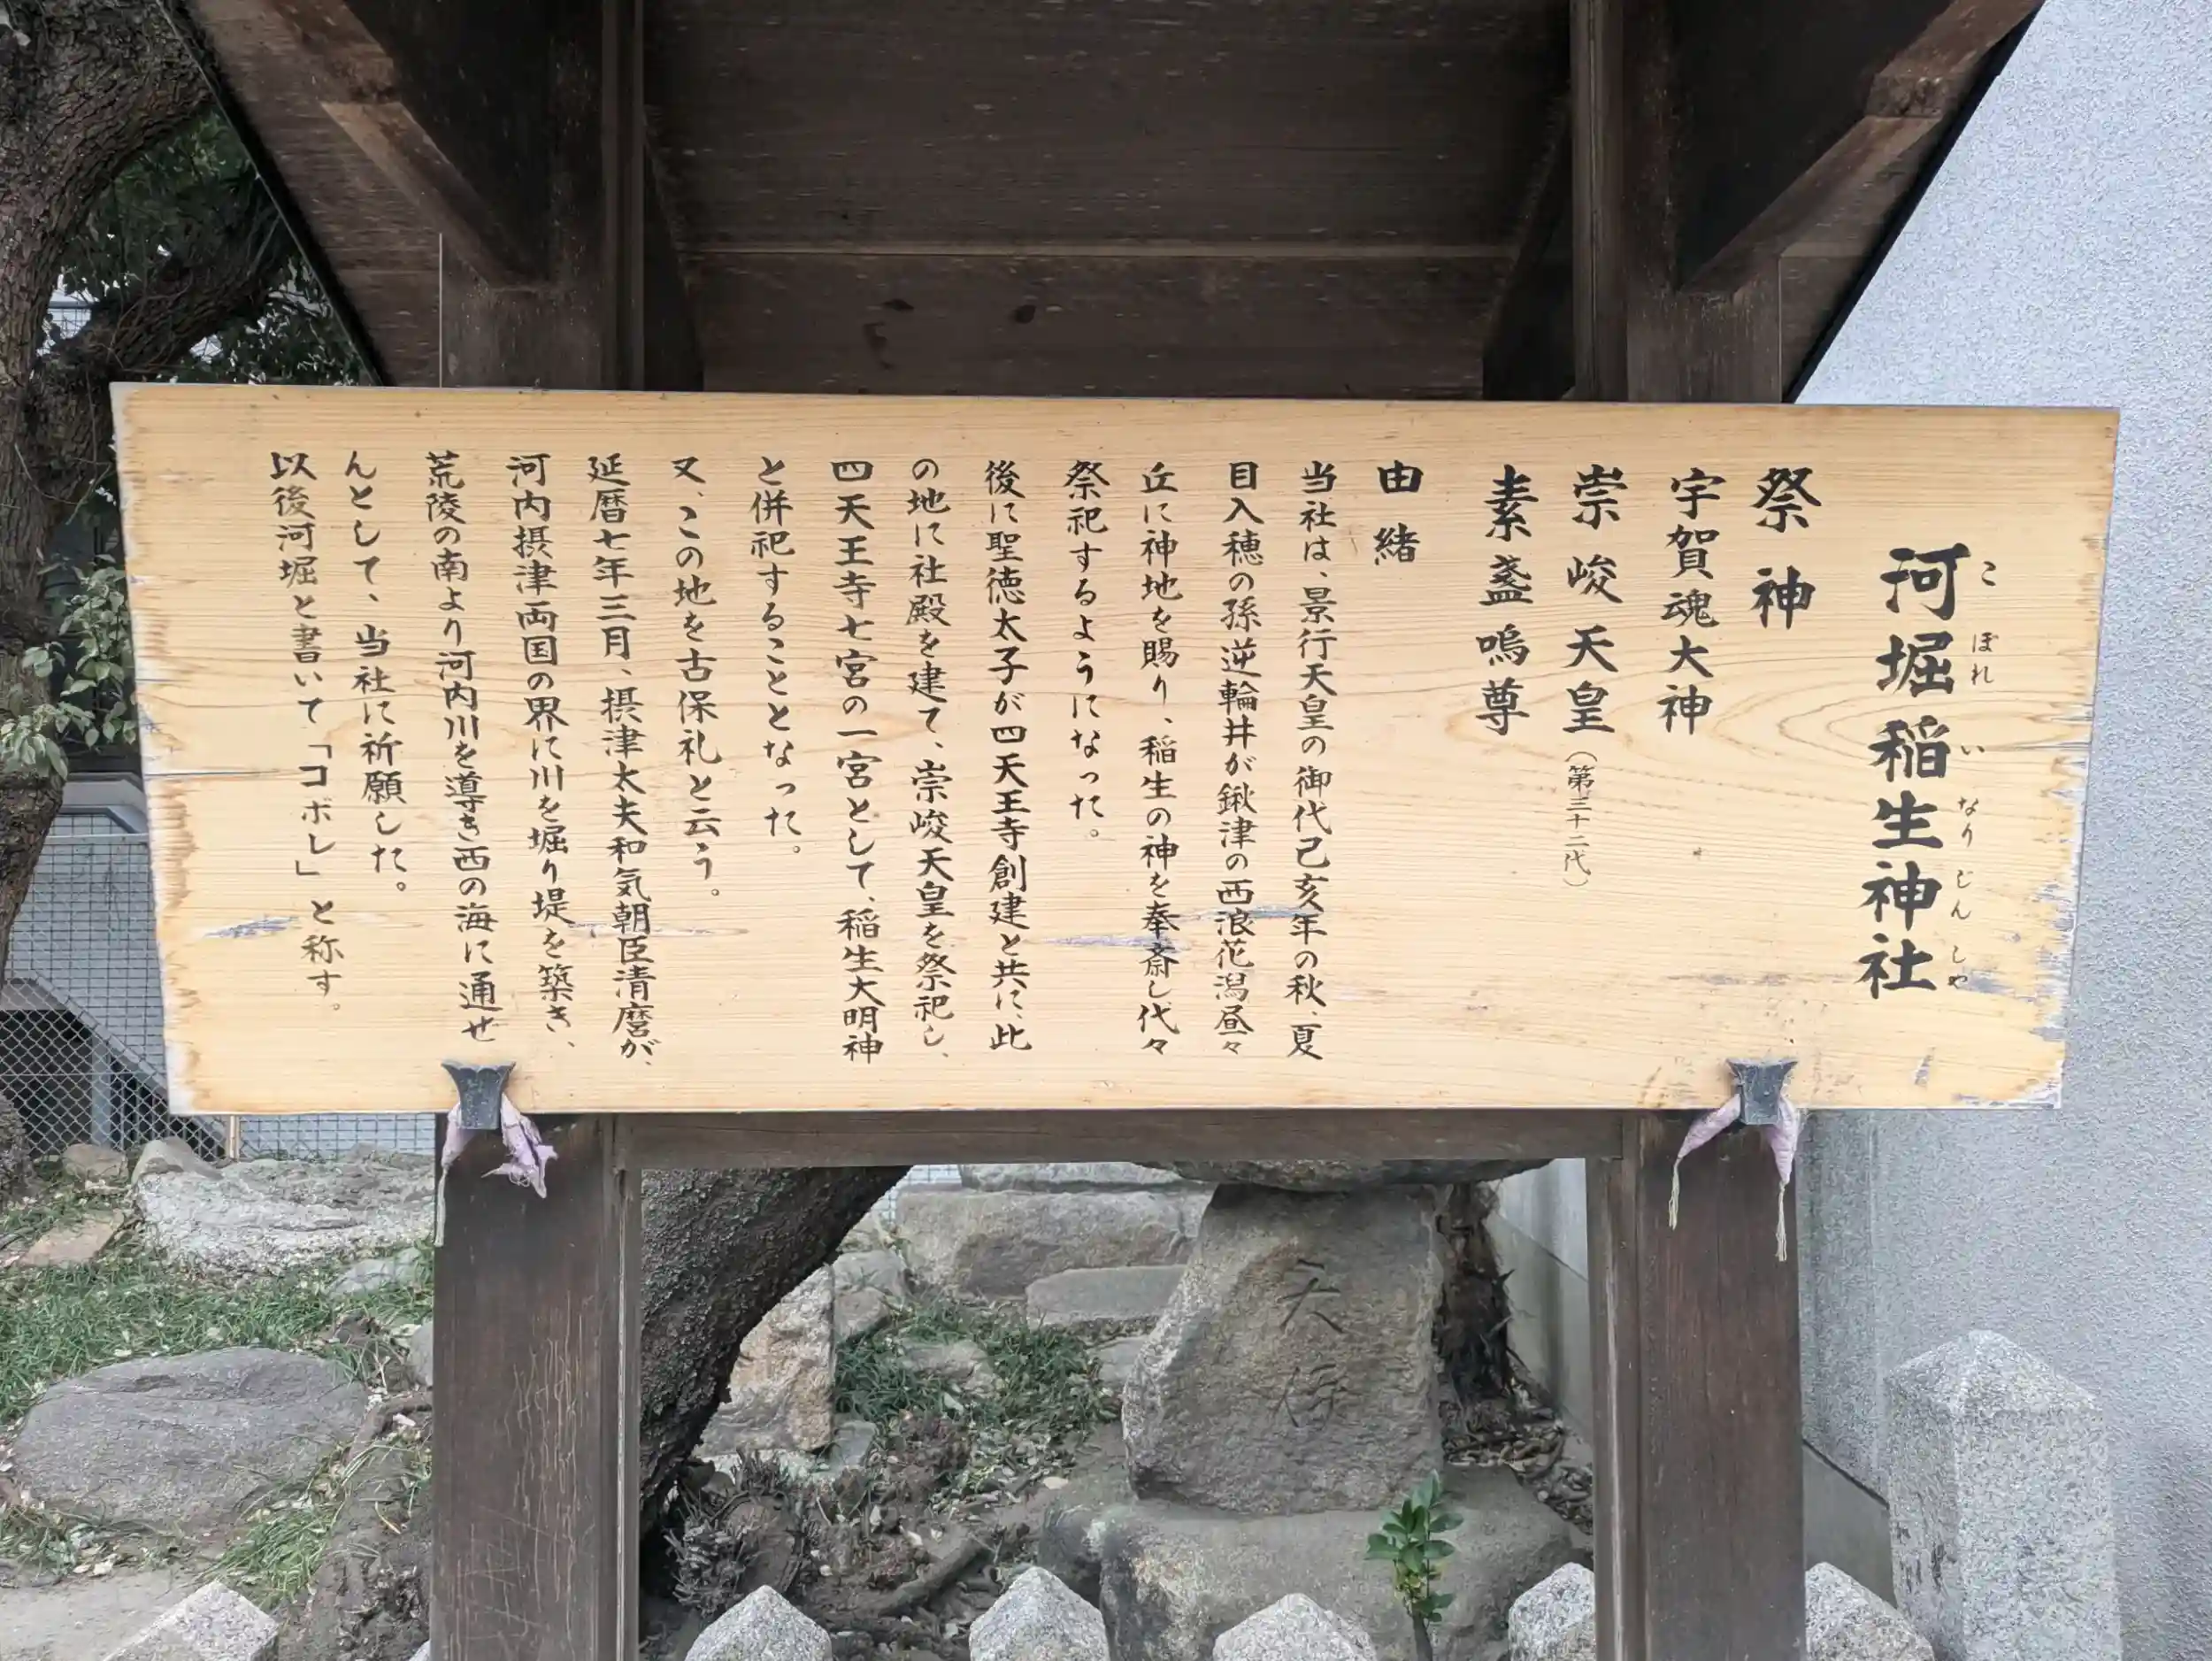 河堀稲生神社
こぼれいなりじんしゃ
祭神
宇賀魂大神
崇峻天皇（第三十二代）
素盞嗚尊
由緒
当社は、景行天皇の御代己亥年の秋、夏
目入穂の孫逆輪井が鍬津の西浪花潟昼々
丘に神地を賜り、稲生の神を奉斎し代々
祭祀するようになった。
後に聖徳太子が四天王寺創建と共に、此
の地に社殿を建て、崇峻天皇を祭祀し、
四天王寺七宮の一宮として、稲生大明神
と併祀することとなった。
又、この地を古保礼と云う。
延暦七年三月、摂津太夫和気朝臣清麿が、
河内摂津両国の界に川を堀り堤を築き、
荒陵の南より河内川を導き西の海に通せ
んとして、当社に祈願した。
以後河堀と書いて「コボレ」と称す。